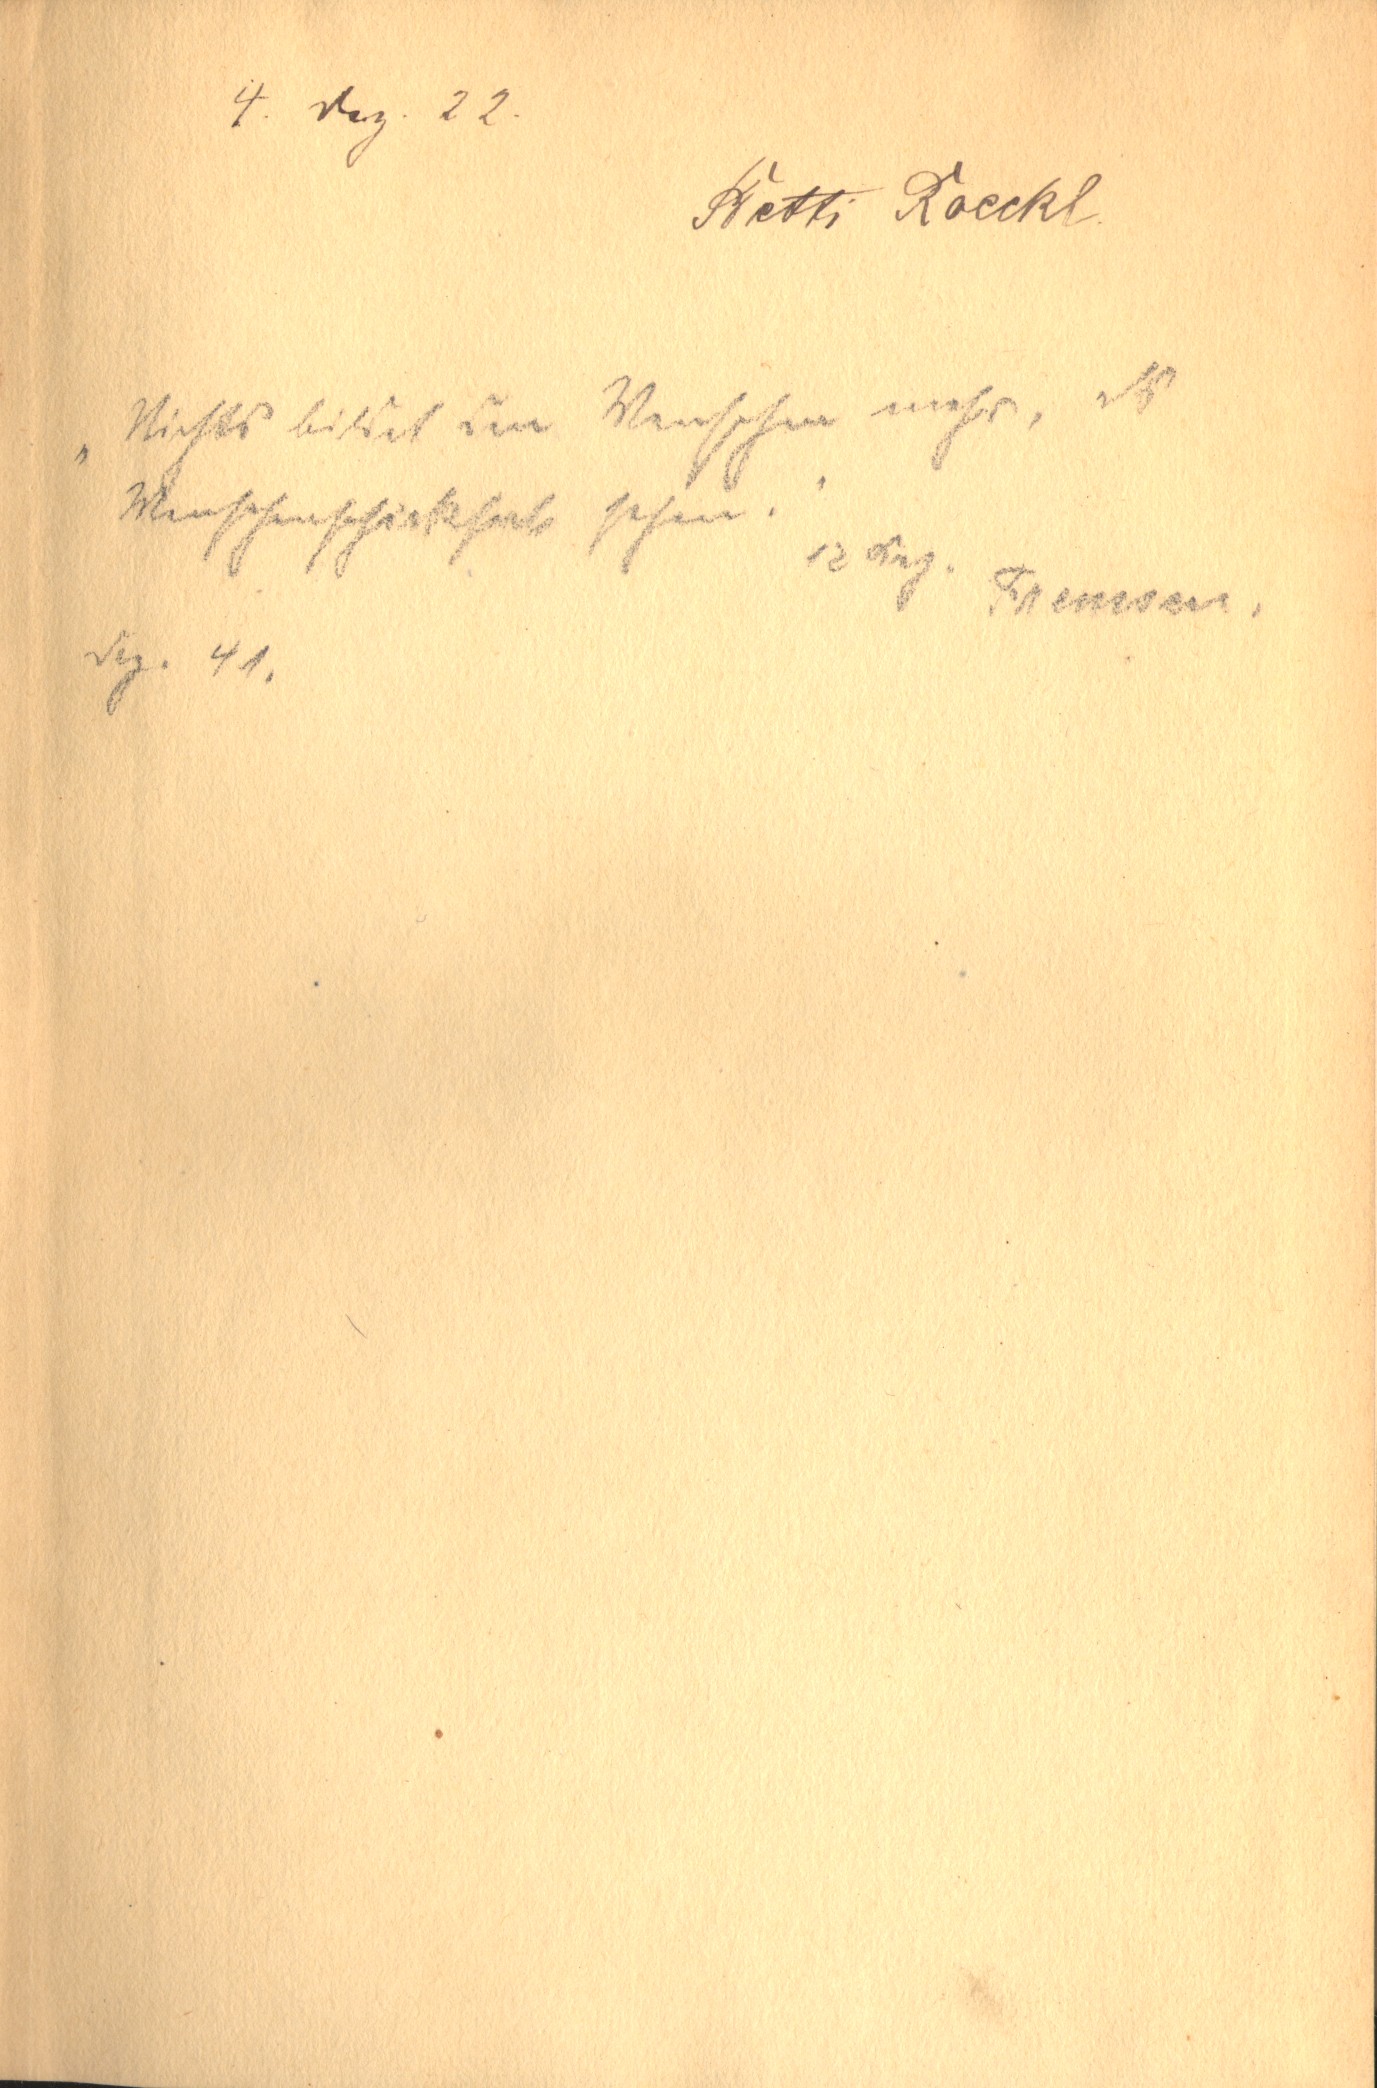 4. Dez. 22.
Betti Roeckl.
„Nichts bildet den Menschen mehr, als
Menschenschicksale sehen."
Dez. Frenssen.
Dez. 41.